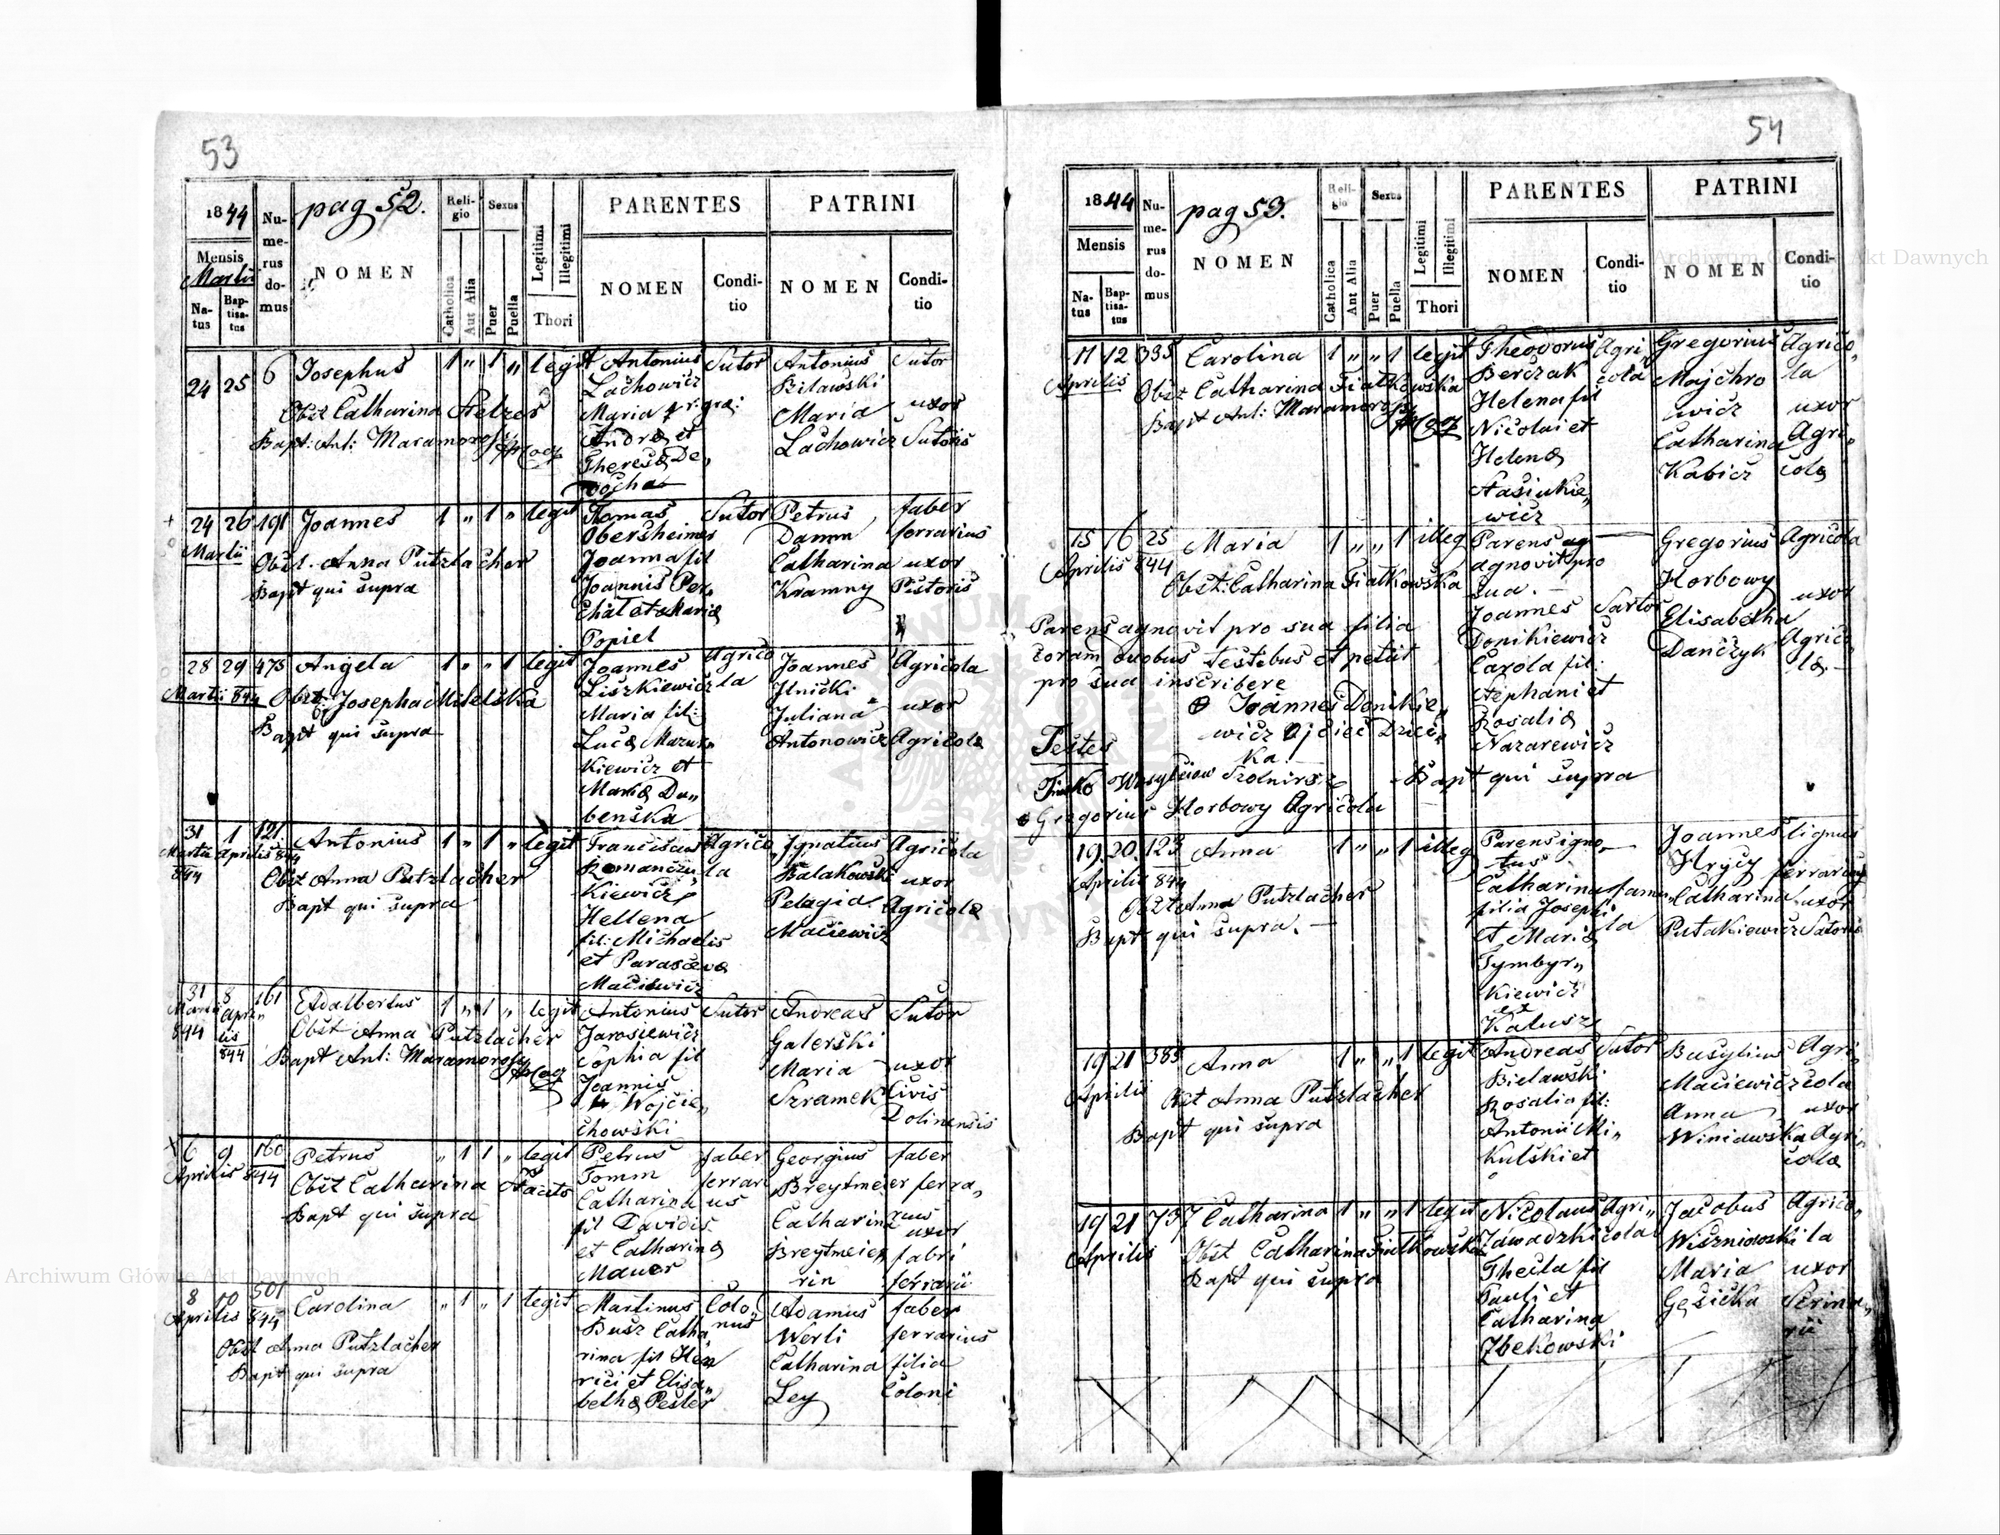 53
1844
Mensis
Martii
Natus
Baptisatus
Numerus domus
pag 52.
NOMEN
Religio
Catholica
Aut Alia
Sexus
Puer
Puella
Legitimi
Illegitimi
Thori
PARENTES
NOMEN
Conditio
PATRINI
NOMEN
Conditio
24 25 6 Josephus 1 " 1 " legit Antonius Sutor Antonius Sutor
Lachowicz Bilawski
Obst Catharina Maria Maria uxor
Bapt: Ant: Maramorosz Andreæ et Lachowicz Sutoris
Theresæ
24 26 191 Joannes 1 " 1 " legit Thomas Sutor Petrus faber
Martii Obersheimer Damm ferrarius
Obst. Anna Putzlacher Joanna fil Catharina uxor
Bapt qui supra Joannis Kramny Pistoris
et Mariæ
Popiel
28 29 475 Angela 1 " " 1 legit Joannes Agrico Joannes Agricola
Martii 844 Obst: Josepha Mitelska Liszkiewicz la Ilnicki
Bapt qui supra Maria fil: Juliana uxor
Lucæ Antonowicz Agricolæ
kiewicz et
Mariæ Du„
benska
31 1 121. Antonius 1 " 1 " legit Franciscus Agrico Ignatius Agricola
Martii Aprilis 844 Romanczu la Balakowski
844 Obst Anna Putzlacher kiewicz uxor
Bapt qui supra Hellena Pelagia Agricolæ
fil: Michaelis Maciewicz
et Parascevæ
Maciewicz
31 8 161 Adalbertus 1 " 1 " legit Antonius Sutor Andreas Sutor
Martii Apri„ Obst Anna Putzlacher Jarosiewicz Galerski
844 lis Bapt Ant: Maramorosz Sophia fil Maria uxor
844 Joannis Szramek Civis
Wojcie„ Dolinensis
chowski
6 9 160 Petrus " 1 1 " legit Petrus faber Georgius faber
Aprilis 844 Obst Catharina Tomm ferrari Breytmeier ferra„
Bapt qui supra Catharina us Catharina rius
fil Davidis uxor
et Catharinæ Breytmeier fabri
Mauer rin ferrarii
8 10 501 Carolina " 1 " 1 legit Martinus Colo„ Adamus faber
Aprilis 844 Busz Catha nus Werli ferrarius
Obst Anna Putzlacher rina fil Hen Catharina filia
Bapt qui supra rici et Elisa„ Ley Coloni
bethæ Pesler
54
1844
Mensis
Natus
Baptisatus
Numerus domus
pag 53.
NOMEN
Religio
Catholica
Aut Alia
Sexus
Puer
Puella
Legitimi
Illegitimi
Thori
PARENTES
NOMEN
Conditio
PATRINI
NOMEN
Conditio
11 12 335 Carolina 1 " " 1 legit Theodorus Agri Gregorius Agrico„
Aprilis Obst Catharina Fiatkowska Berczak cola Majchro la
Bapt Ant: Maramorosz Helena fil wicz uxor
Nicolai et Catharina Agri„
Helenæ Kabicz colæ
Nasiukie„
wicz
15 16 25 Maria 1 " " 1 illeg Parens Gregorius Agricola
Aprilis 844 agnovit pro Horbowy
Obst: Catharina Fiatkowska sua.- uxor
Joannes Sartor Elisabetha
Parens agnovit pro sua filia Donikiewicz Danczyk Agrico
coram duobus testibus et petiit Carola fil: læ-
pro sua inscribere Stephani et
Joannes Donikie„ Rosaliæ
wicz Ojciec Dziec„ Nazarewicz
Testes ka
Bapt qui supra
Gregorius Horbowy Agricola
19. 20. 123 Anna 1 " " 1 illeg Parens igno„ Joannes lignus
Aprilis 844 tus Hrycy ferrarius
Obst Anna Putzlacher Catharina famu„ Catharina uxor
Bapt qui supra. filia Josephi la Putakiewicz Sutoris
et Mariæ
Tymbyr„
kiewicz
et
Kalusz
19 21 385 Anna 1 " " 1 legit Andreas Sutor Basylius Agri„
Aprilis Bielawski Maciewicz cola
Obst Anna Putzlacher Rosalia fil: Anna uxor
Bapt qui supra Antonii Mi„ Winiawska Agri
kulski et colæ
19 21 737 Catharina 1 " " 1 legit Nicolaus Agri„ Jacobus Agrico„
Aprilis Obst Catharina Fiatkowska Zawadzki cola Wiszniowski la
Bapt qui supra Thecla fil Maria uxor
Pauli et Gęsicka
Catharina
Zbekowski
Archiwum Główne Akt Dawnych
Archiwum Główne Akt Dawnych